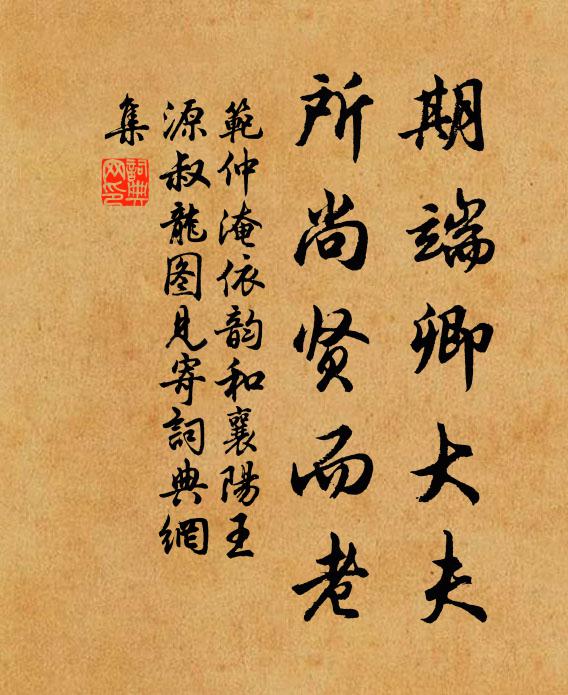 期端卿大夫
所尚贤而老
範仲淹依韵和襄陽王
源叔龍图見寄詞典網
集
詞典
网印